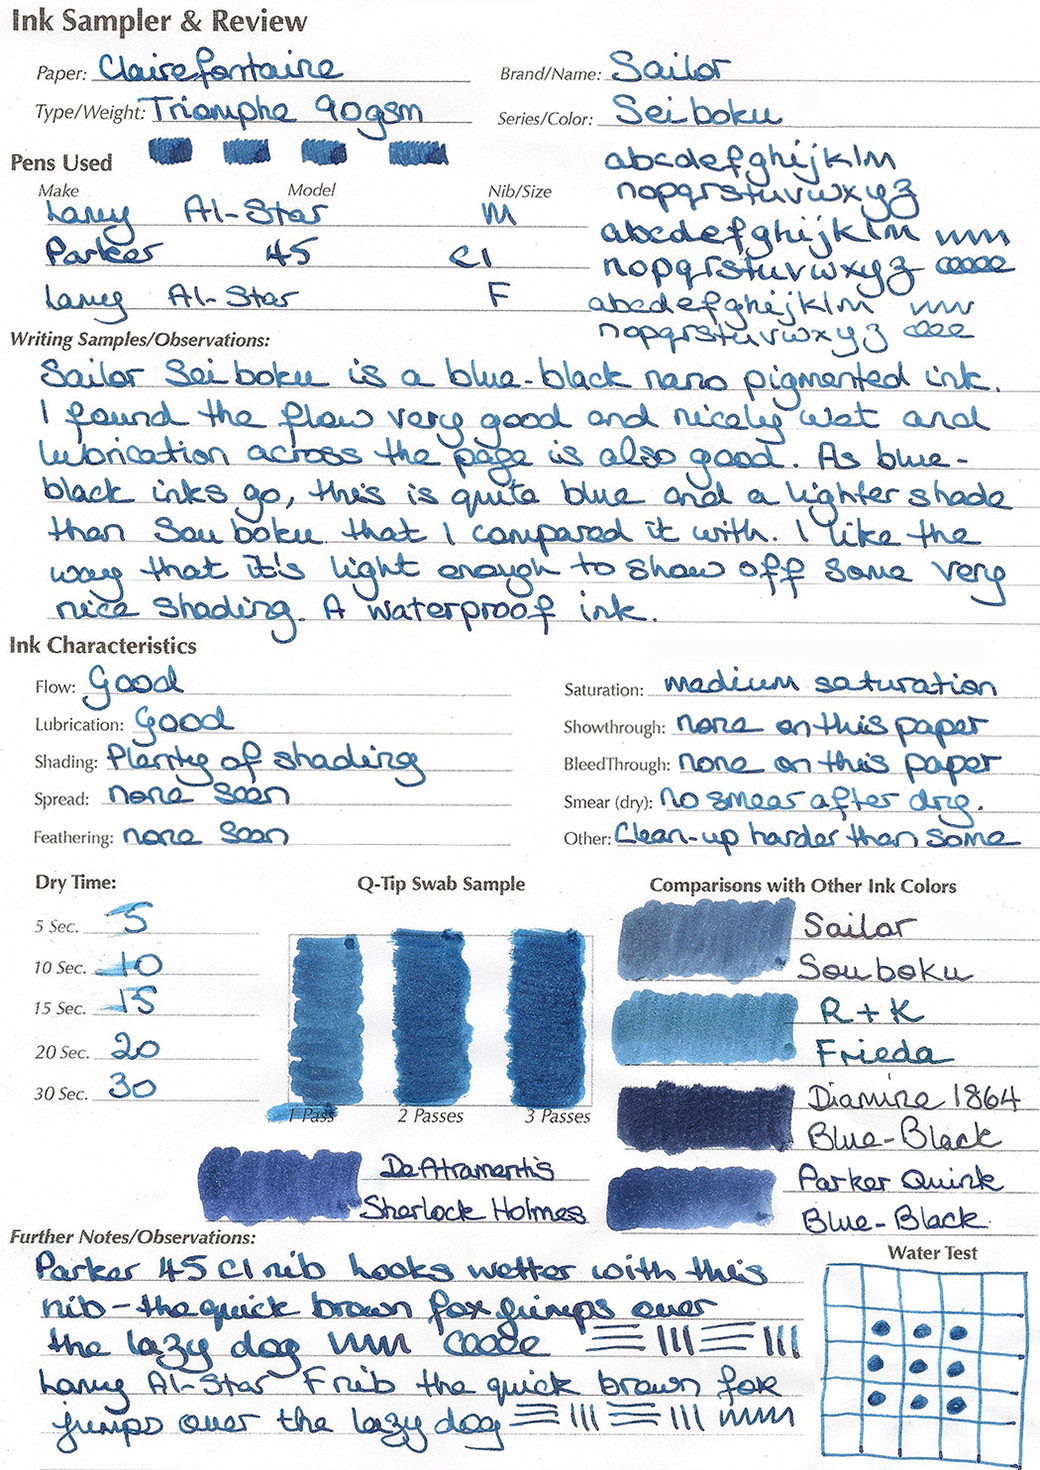 Ink Sampler & Review
Paper: Clairefontaine
Brand/Name: Sailor
Type/Weight: Triomphe 90gsm
Series/Color: Sei boku
Pens Used
Make Model Nib/Size
Lamy Al-Star M
Parker 45 CI
Lamy Al-Star F
abcdefghijklm
nopqrstuvwxyz
abcdefghijklm
nopqrstuvwxyz
abcdefghijklm
nopqrstuvwxyz
Writing Samples/Observations:
Sailor Sei boku is a blue-black nano pigmented ink.
I found the flow very good and nicely wet and
lubrication across the page is also good. As blue-
black inks go, this is quite blue and a lighter shade
than Sou boku that I compared it with. I like the
way that it's light enough to show off some very
nice shading. A waterproof ink.
Ink Characteristics
Flow: Good
Lubrication: Good
Shading: Plenty of shading
Spread: none seen
Feathering: none seen
Saturation: medium saturation
Showthrough: none on this paper
BleedThrough: none on this paper
Smear (dry): no smear after dry.
Other: Clean-up harder than some
Dry Time:
5 Sec. 5
10 Sec. 10
15 Sec. 15
20 Sec. 20
30 Sec. 30
Q-Tip Swab Sample
1 Pass 2 Passes 3 Passes
Comparisons with Other Ink Colors
Sailor
Sou boku
R + K
Frieda
Diamine 1864
Blue-Black
Parker Quink
Blue-Black
De Atramentis
Sherlock Holmes
Further Notes/Observations:
Parker 45 CI nib looks wetter with this
nib - the quick brown fox jumps over
the lazy dog
Lamy Al-Star F nib the quick brown fox
jumps over the lazy dog
Water Test